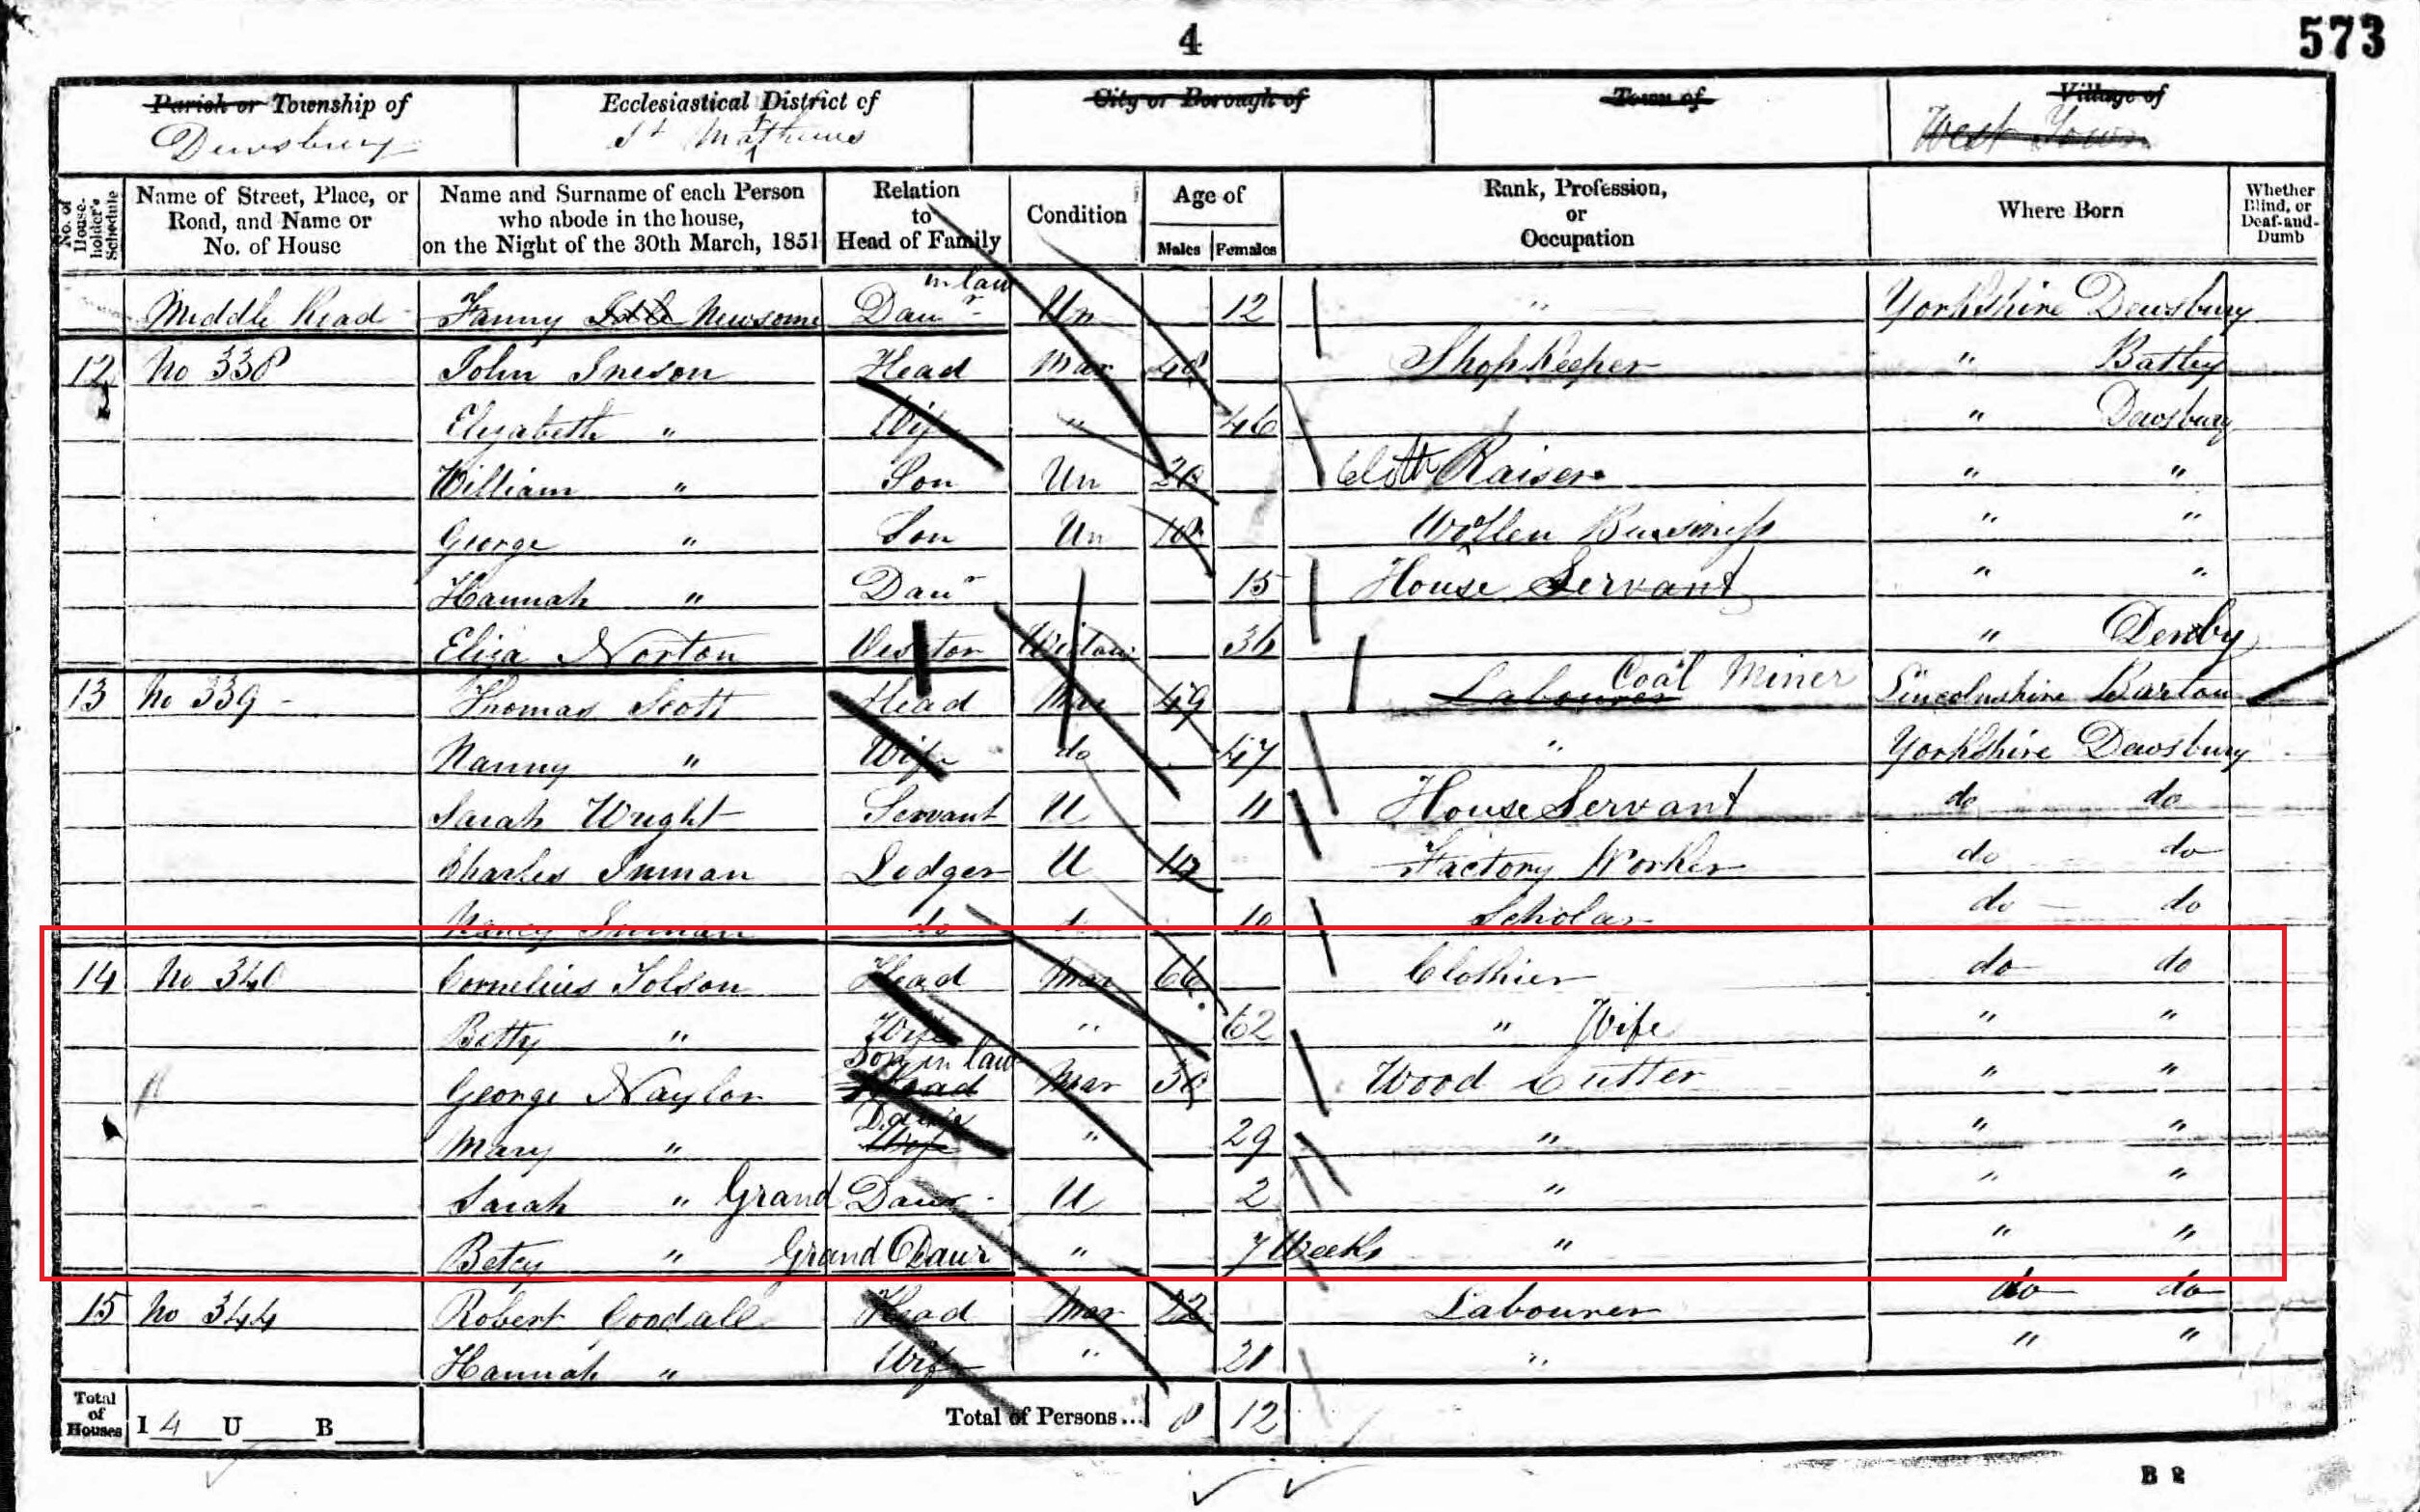 4
573
Parish or Township of
Dewsbury
Ecclesiastical District of
St Mathews
City or Borough of
Town of
Village of
West Town
No. of House-holder's Schedule
Name of Street, Place, or Road, and Name or No. of House
Name and Surname of each Person who abode in the house, on the Night of the 30th March, 1851
Relation to Head of Family
Condition
Age of
Males Females
Rank, Profession, or Occupation
Where Born
Whether Blind, or Deaf-and-Dumb
Middle Road Fanny Newsome Daur in law Un 12 " Yorkshire Dewsbury
12 No 338 John Ineson Head Mar 48 Shopkeeper " Batley
Elizabeth " Wife " 46 " Dewsbury
William " Son Un 20 Cloth Raiser " "
George " Son Un 18 Wollen Bussiness " "
Hannah " Daur 15 House Servant " "
Eliza Norton Visitor Widow 36 " Denby
13 No 339 Thomas Scott Head Mar 49 Labourer Coal Miner Lincolnshire Barton
Nanny " Wife do 47 " Yorkshire Dewsbury
Sarah Wright Servant U 11 House Servant do do
Charles Inman Lodger U Factory Worker do do
Nancy Inman do 10 Scholar do do
14 No 340 Cornelius Tolson Head Mar 66 Clothier do do
Betty " Wife " 62 " Wife " "
George Naylor Son in law Head Mar 30 Wood Cutter " "
Mary " Daur Wife " 29 " " "
Sarah " Grand Daur U 2 " " "
Betcy " Grand Daur " 7 Weeks " " "
15 No 344 Robert Goodall Head Mar 22 Labourer do do
Hannah " Wife " 21 " " "
Total of Houses I 4 U B
Total of Persons... 8 12
B 2